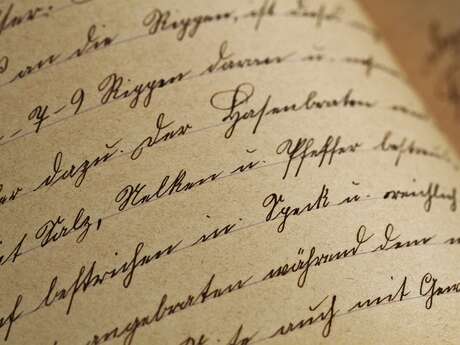 an die Rippen, ist
7-9 Rippen daran u.
dazu. Der Hasenbraten
Salz, Nelken u. Pfeffer
bestrichen in Speck u. reichlich
angebraten während dem
auch mit